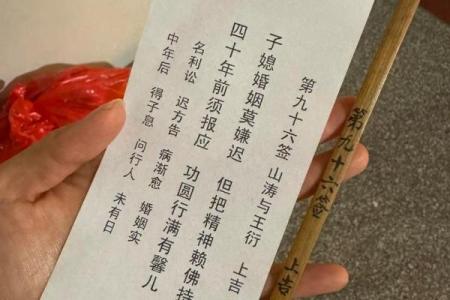 第九十六签 山涛与王衍 上吉
子媳婚姻莫嫌迟 但把精神赖佛持
四十年前须报应 功圆行满有馨儿
名利讼 迟方告 病渐愈 婚姻实
中年后 得子息 问行人 未有日
第九十六签 上吉